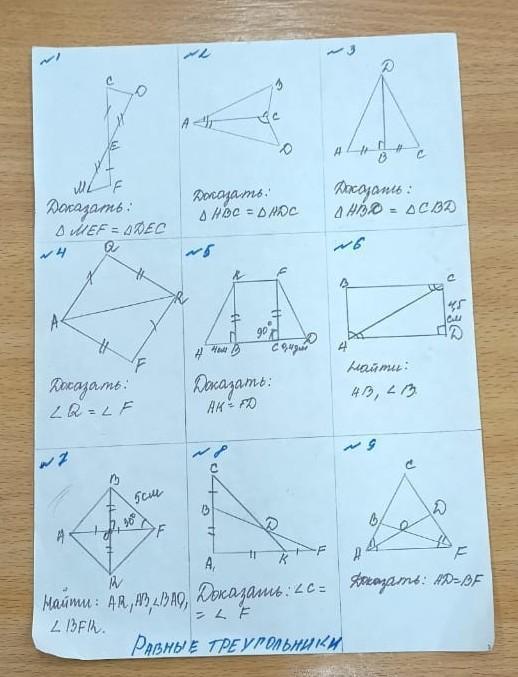 №1
C
D
E
M
F
Доказать:
△MEF = △DEC
№2
B
A
C
D
Доказать:
△ABC = △ADC
№3
D
A
B
C
Доказать:
△ABD = △CBD
№4
Q
A
R
F
Доказать:
∠Q = ∠F
№5
K
F
90°
A
4см
B
C
0,4дм
D
Доказать:
AK = FD
№6
B
C
4,5
см
A
D
Найти:
AB, ∠B.
№7
B
5см
A
O
30°
F
R
Найти: AR, AB, ∠BAO,
∠BFR.
№8
C
B
D
A
K
F
Доказать: ∠C =
= ∠F
№9
C
B
O
D
A
F
Доказать: AD=BF
РАВНЫЕ ТРЕУГОЛЬНИКИ